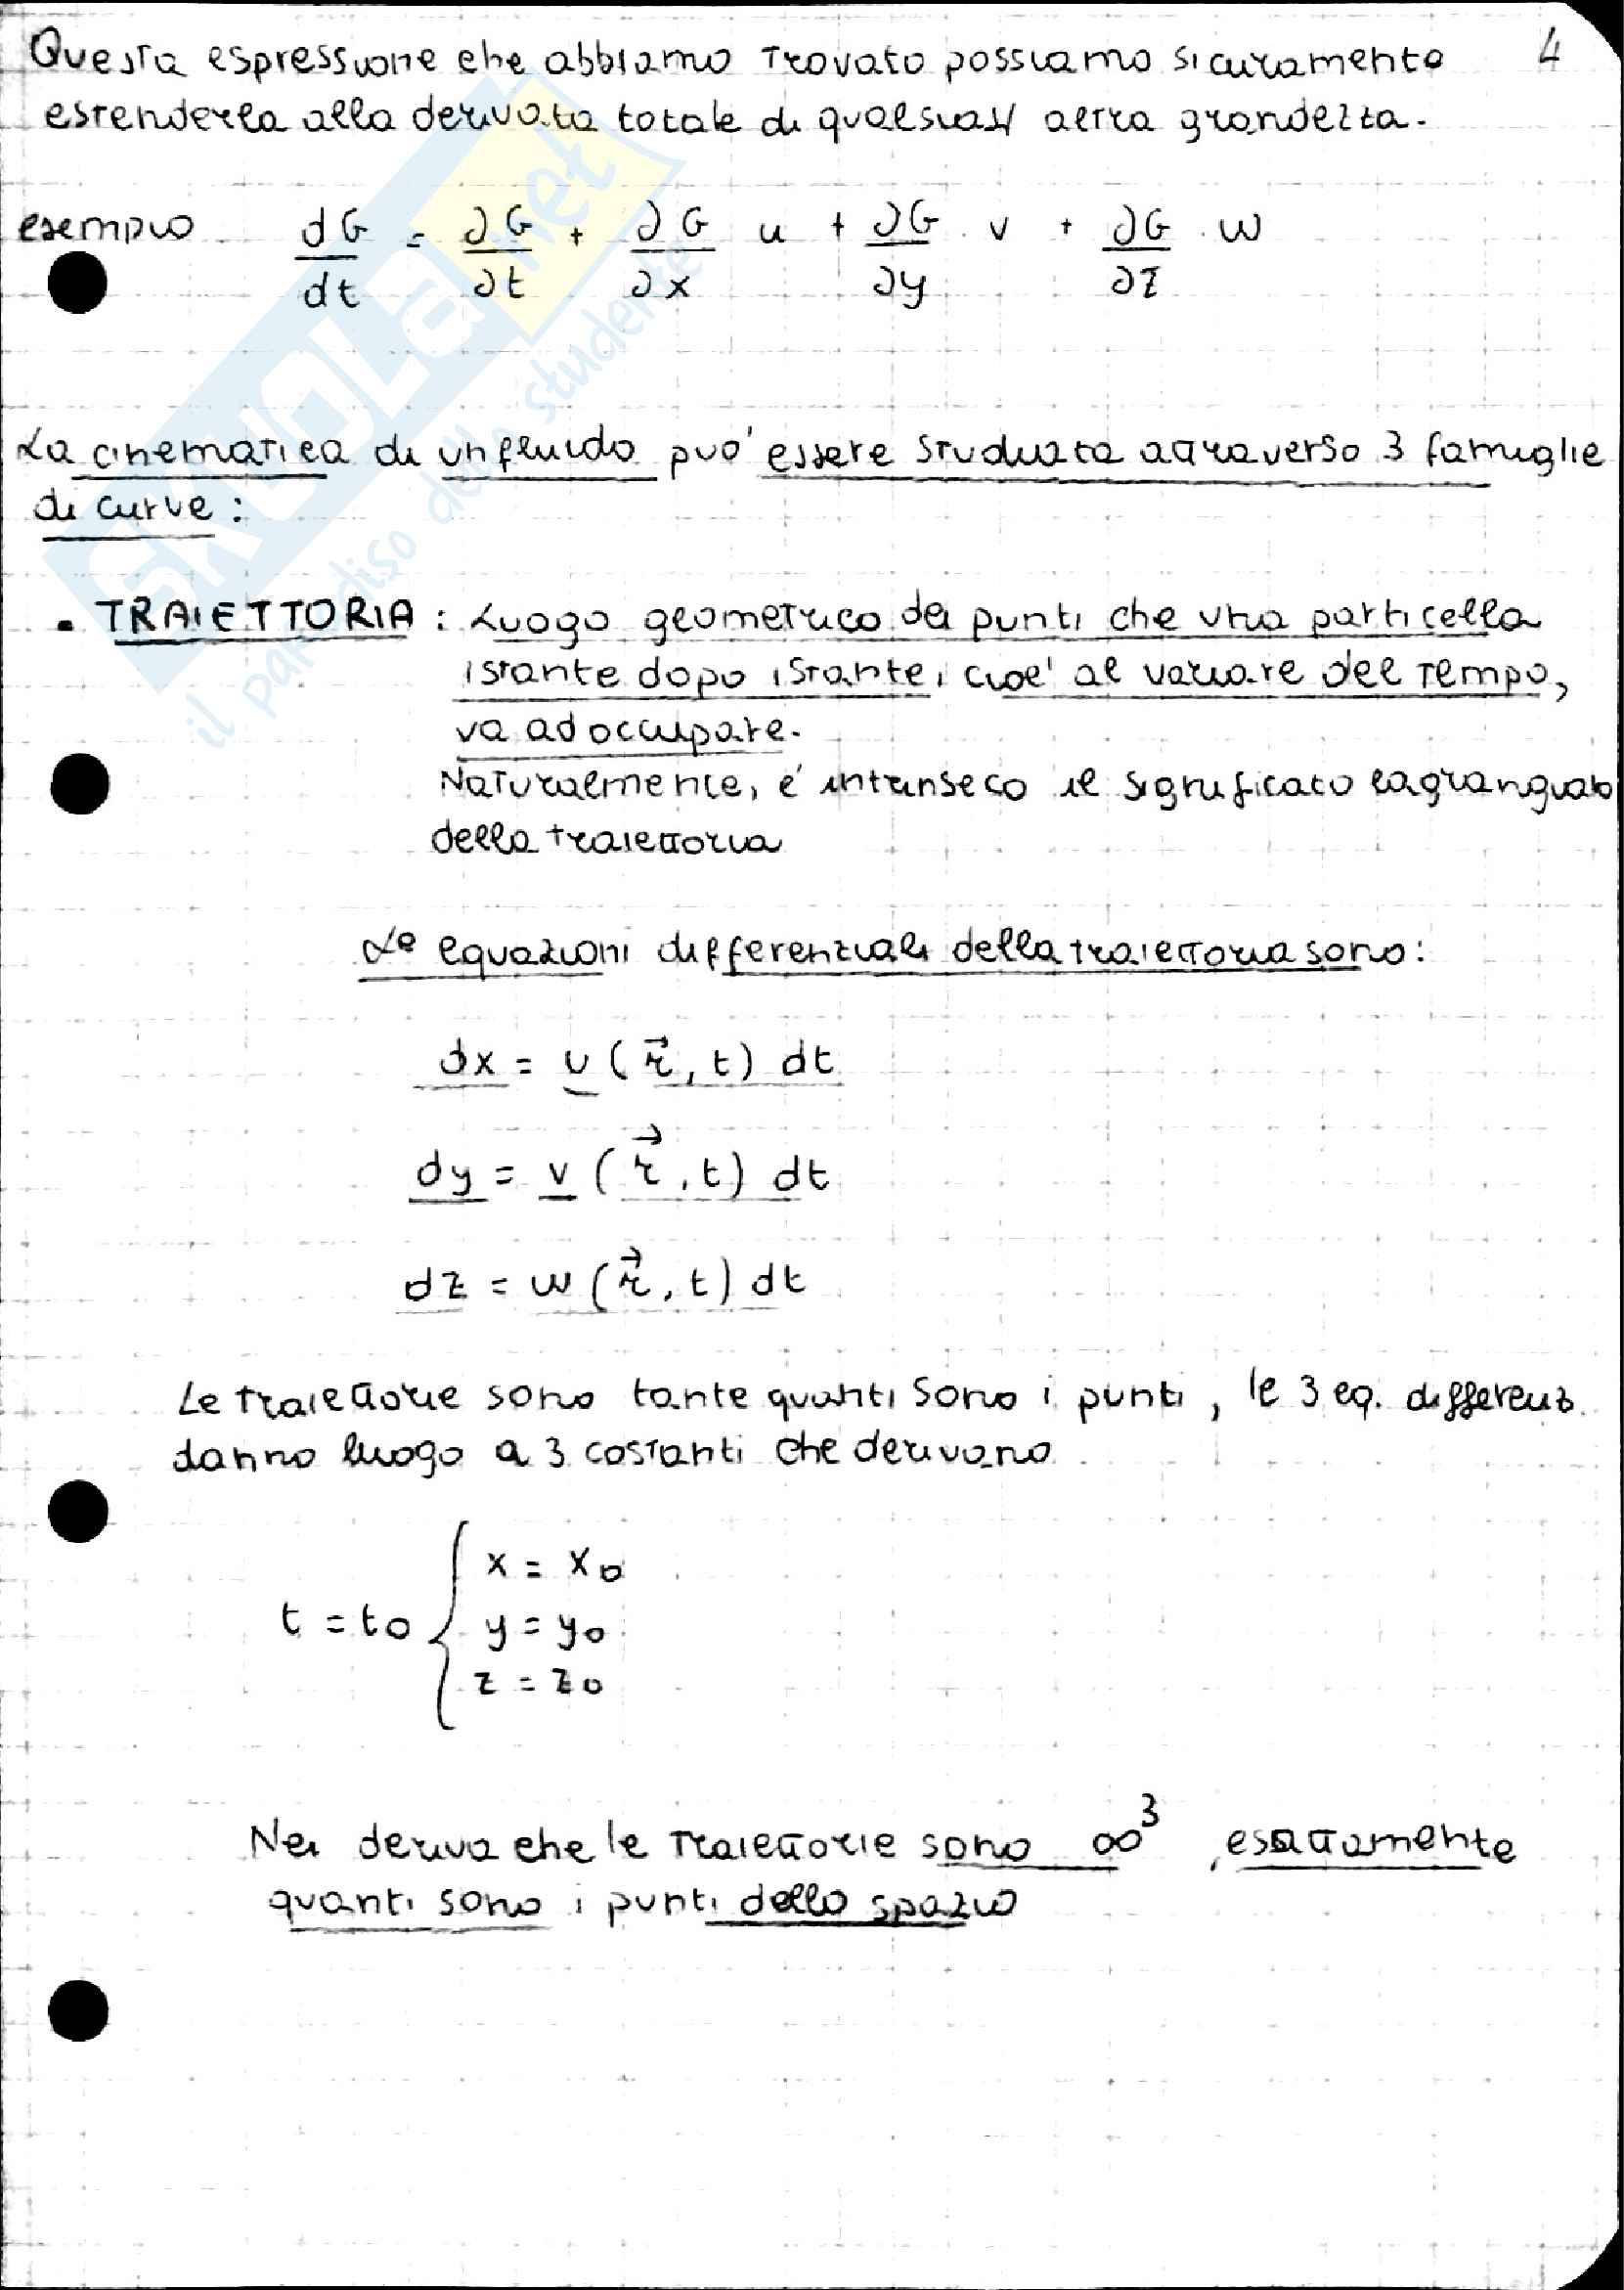 4
Questa espressione che abbiamo trovato possiamo sicuramente
estenderla alla derivata totale di qualsiasi altra grandezza.
esempio dG/dt = ∂G/∂t + ∂G/∂x u + ∂G/∂y · v + ∂G/∂z · w
La cinematica di un fluido può essere studiata attraverso 3 famiglie
di curve:
• TRAIETTORIA: Luogo geometrico dei punti che una particella
istante dopo istante, cioè al variare del tempo,
va ad occupare.
Naturalmente, è intrinseco il significato lagrangiano
della traiettoria
Le equazioni differenziali della traiettoria sono:
dx = u (r⃗, t) dt
dy = v (r⃗, t) dt
dz = w (r⃗, t) dt
Le traiettorie sono tante quanti sono i punti, le 3 eq. differenz.
danno luogo a 3 costanti che derivano
t = t0 { x = x0
y = y0
z = z0
Nei deriva che le traiettorie sono ∞³, esattamente
quanti sono i punti dello spazio
SKUOLa.net
il paradiso dello studente